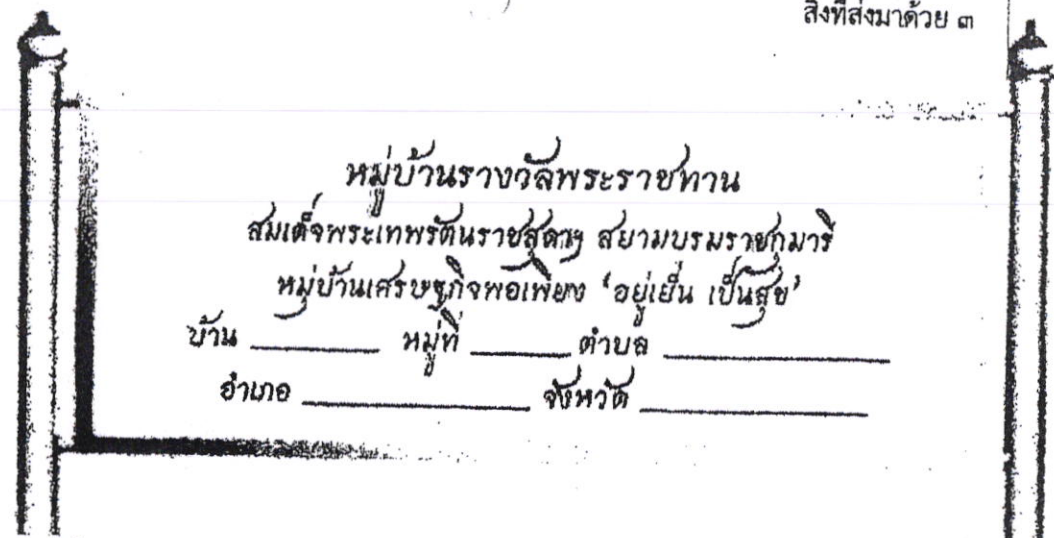 สิ่งที่ส่งมาด้วย ๓
หมู่บ้านรางวัลพระราชทาน
สมเด็จพระเทพรัตนราชสุดาฯ สยามบรมราชกุมารี
หมู่บ้านเศรษฐกิจพอเพียง 'อยู่เย็น เป็นสุข'
บ้าน __________ หมู่ที่ ________ ตำบล __________________
อำเภอ __________________ จังหวัด __________________